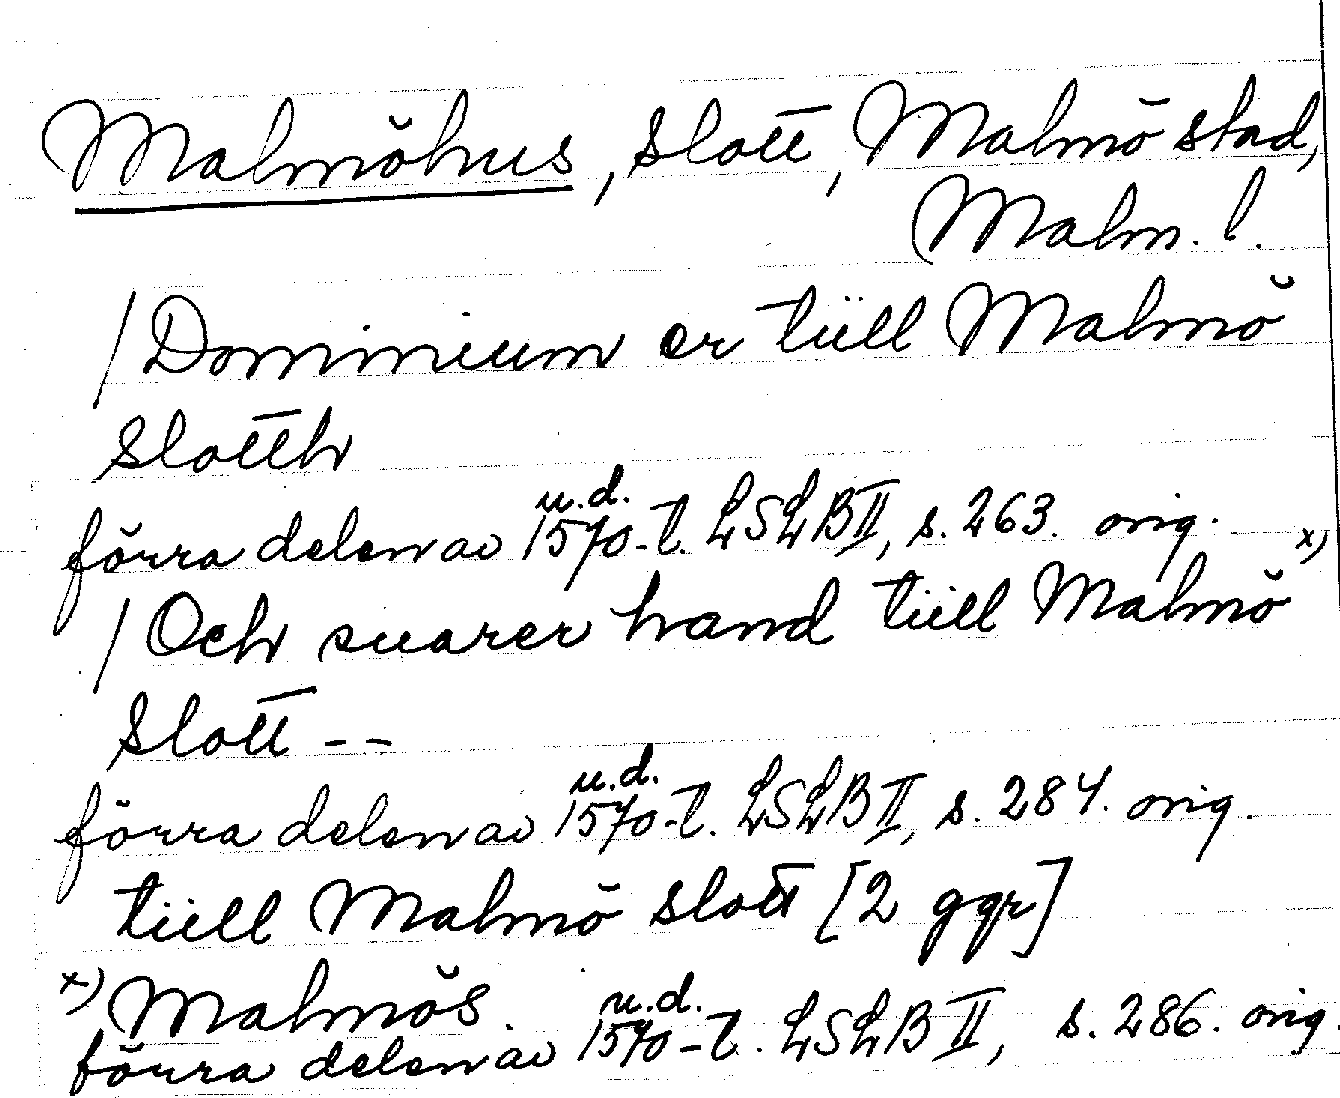 Malmöhus, slott, Malmö stad,
Malm. l.
/Dominium er tiill Malmö
slotth
u.d.
förra delen av 1570-t. LSLB II, s. 263. orig.
/Och suarer hand tiill Malmö x)
slott --
u.d.
förra delen av 1570-t. LSLB II, s. 284. orig.
tiill Malmö slott [2 ggr]
x) Malmös.
u.d.
förra delen av 1570-t. LSLB II, s. 286. orig.